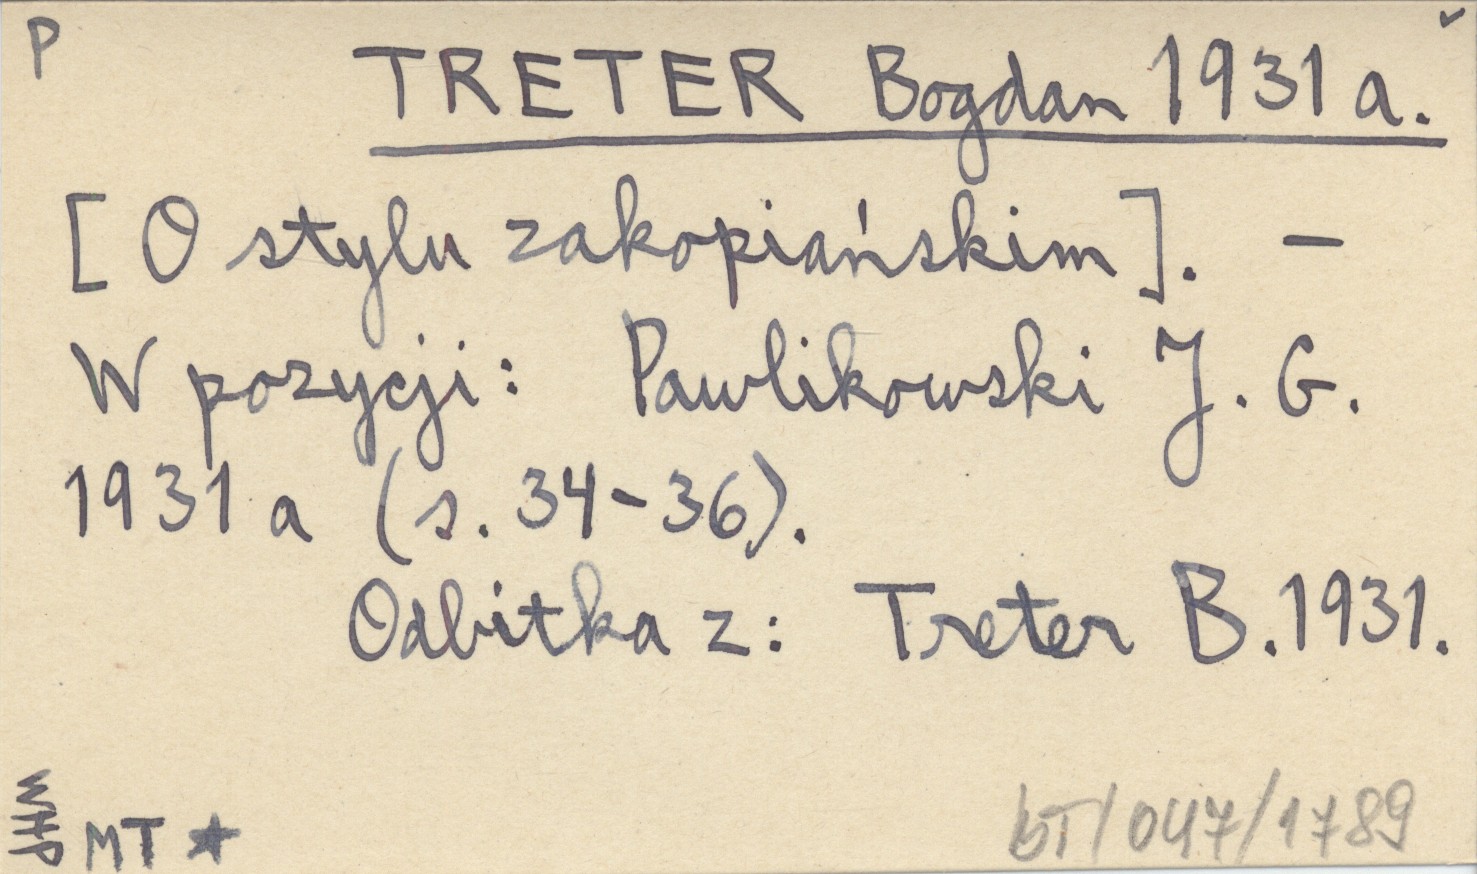 P
TRETER Bogdan 1931 a.
[O stylu zakopiańskim]. —
W pozycji: Pawlikowski J. G.
1931 a (s. 34-36).
Odbitka z: Treter B. 1931.
MT ★
bT/047/1789